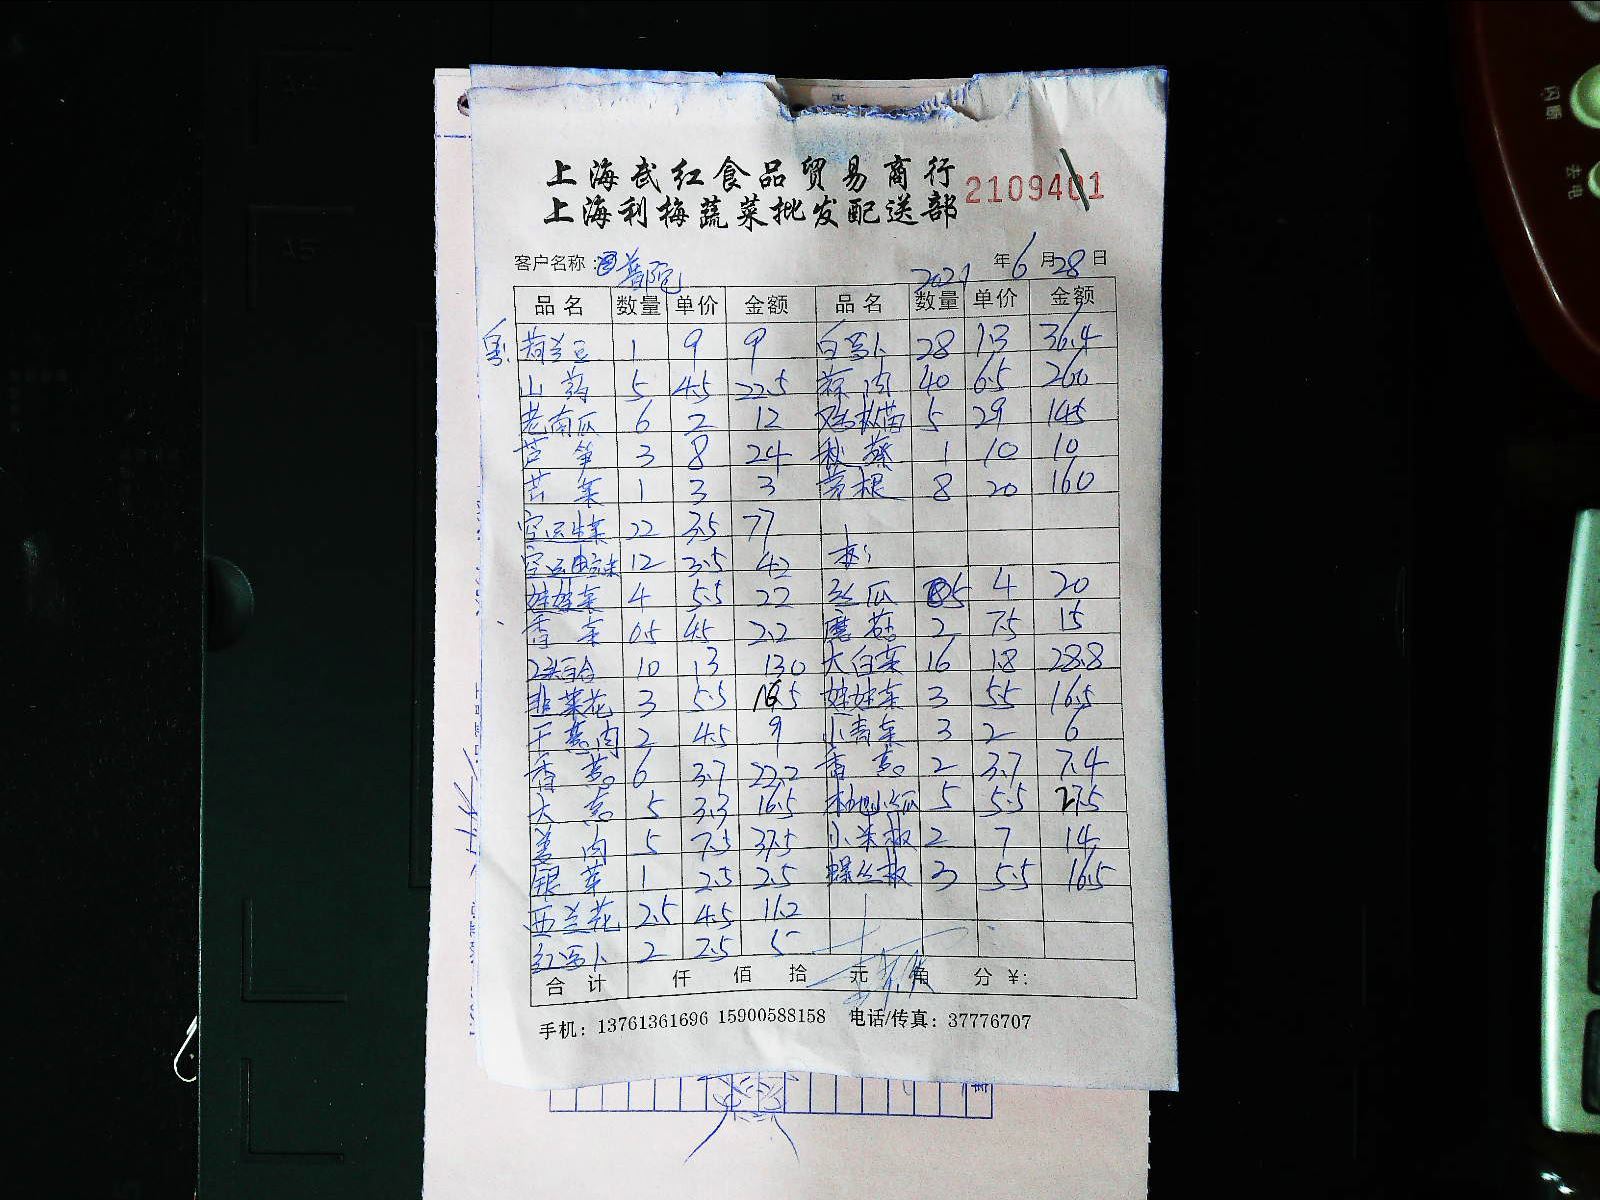 上海武红食品贸易商行
上海利梅蔬菜批发配送部 2109401
客户名称: 普陀 2021年6月28日
品名 数量 单价 金额 品名 数量 单价 金额
荷兰豆 1 9 9 白萝卜 28 1.3 36.4
山药 5 4.5 22.5 蒜肉 40 6.5 260
老南瓜 6 2 12 鸡枞菌 5 29 145
芦笋 3 8 24 1 10 10
芹菜 1 3 3 茅根 8 20 160
空运生菜 22 3.5 77
空运 12 3.5 42
娃娃菜 4 5.5 22 丝瓜 5 4 20
香菜 0.5 4.5 2.2 蘑菇 2 7.5 15
百合 10 13 130 大白菜 16 1.8 28.8
韭菜花 3 5.5 16.5 娃娃菜 3 5.5 16.5
干葱肉 2 4.5 9 小青菜 3 2 6
香葱 6 3.7 22.2 香葱 2 3.7 7.4
大葱 5 3.3 16.5 5 5.5 27.5
姜肉 5 7.5 37.5 小米椒 2 7 14
银芽 1 2.5 2.5 螺丝椒 3 5.5 16.5
西兰花 2.5 4.5 11.2
红萝卜 2 2.5 5
合计 仟 佰 拾 元 角 分 ¥:
手机: 13761361696 15900588158 电话/传真: 37776707